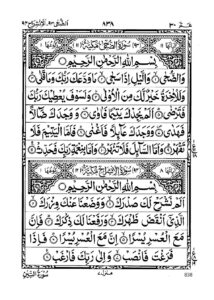 عم ٣٠
٨٣٨
سورة الضحى مكية
بِسْمِ اللّٰهِ الرَّحْمٰنِ الرَّحِيْمِ
وَالضُّحٰى وَالَّيْلِ اِذَا سَجٰى مَا وَدَّعَكَ رَبُّكَ وَمَا قَلٰى
وَلَلْاٰخِرَةُ خَيْرٌ لَّكَ مِنَ الْاُوْلٰى وَلَسَوْفَ يُعْطِيْكَ رَبُّكَ
فَتَرْضٰى اَلَمْ يَجِدْكَ يَتِيْمًا فَاٰوٰى وَوَجَدَكَ ضَآلًّا
فَهَدٰى وَوَجَدَكَ عَآئِلًا فَاَغْنٰى فَاَمَّا الْيَتِيْمَ فَلَا
تَقْهَرْ وَاَمَّا السَّآئِلَ فَلَا تَنْهَرْ وَاَمَّا بِنِعْمَةِ رَبِّكَ فَحَدِّثْ
بِسْمِ اللّٰهِ الرَّحْمٰنِ الرَّحِيْمِ
اَلَمْ نَشْرَحْ لَكَ صَدْرَكَ وَوَضَعْنَا عَنْكَ وِزْرَكَ
الَّذِيْٓ اَنْقَضَ ظَهْرَكَ وَرَفَعْنَا لَكَ ذِكْرَكَ فَاِنَّ
مَعَ الْعُسْرِ يُسْرًا اِنَّ مَعَ الْعُسْرِ يُسْرًا فَاِذَا
فَرَغْتَ فَانْصَبْ وَاِلٰى رَبِّكَ فَارْغَبْ
سورة التين
838